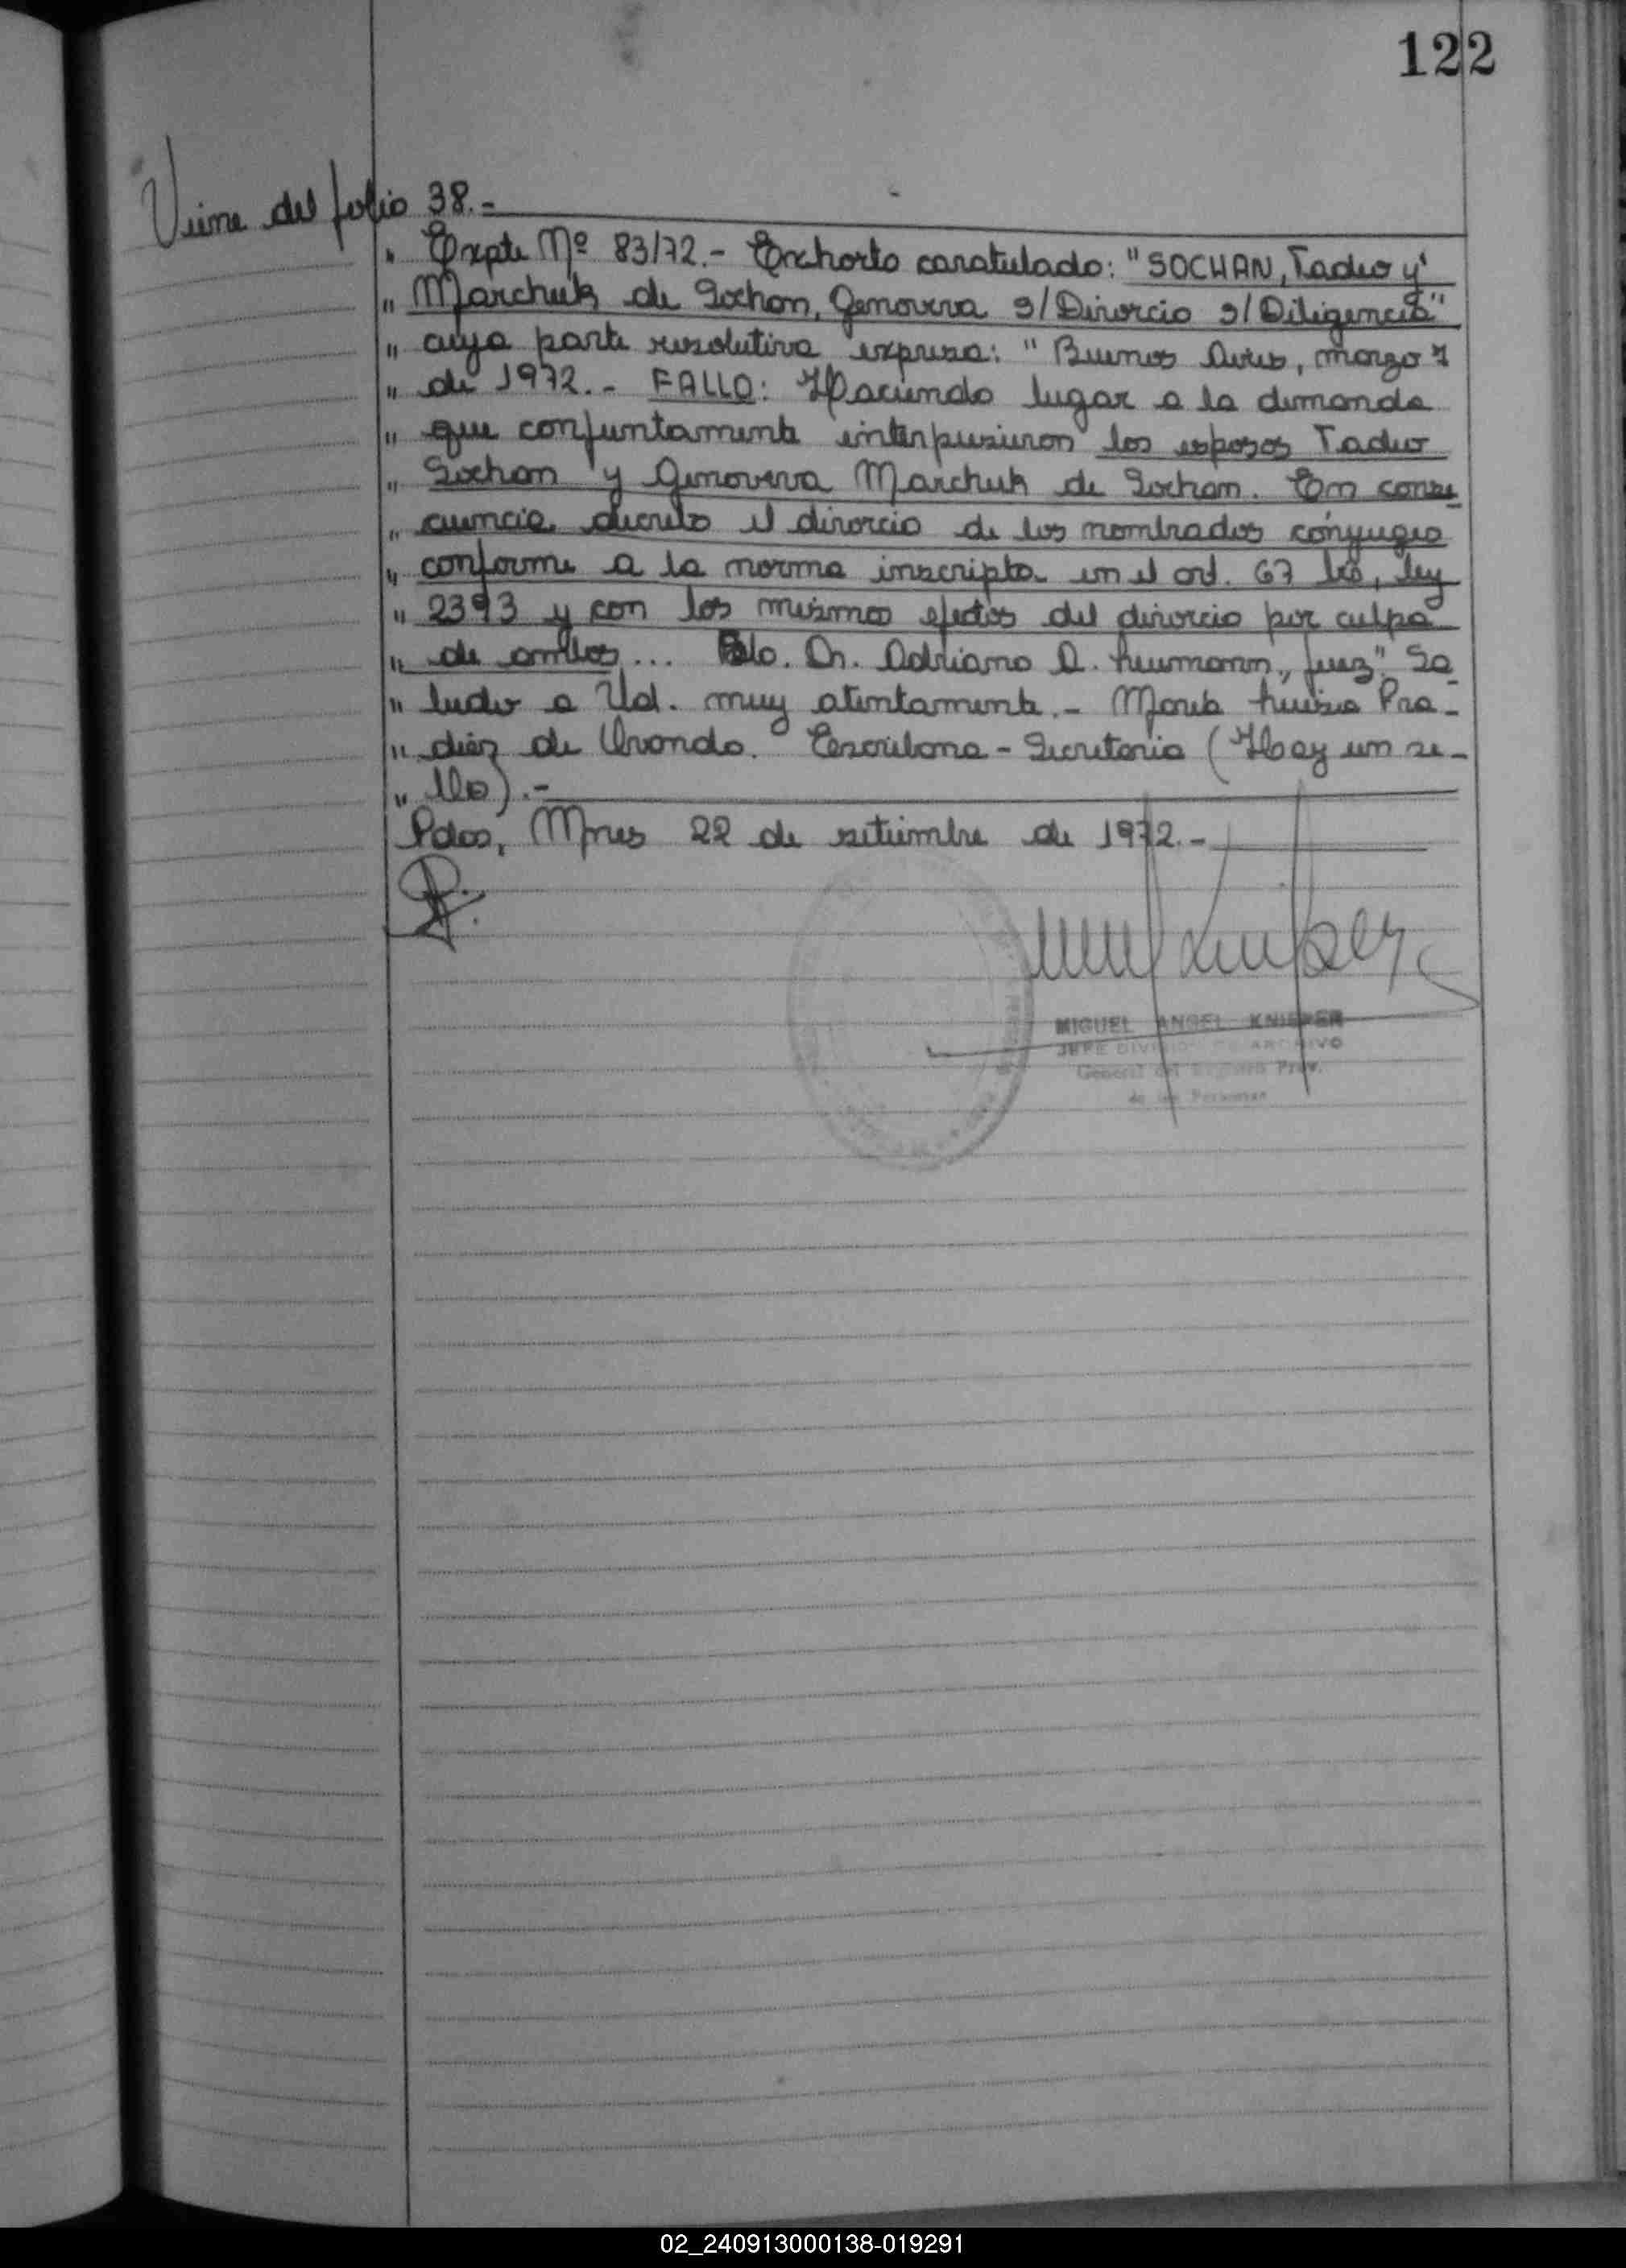 122
Viene del folio 38.-
" Expte Nº 83/72.- Exhorto caratulado: "SOCHAN, Tadeo y
" Marchuk de Sochan, Genoveva s/Divorcio s/Diligencia"
" cuya parte resolutiva expresa: "Buenos Aires, marzo 7
" de 1972.- FALLO: Haciendo lugar a la demanda
" que conjuntamente interpusieron los esposos Tadeo
" Sochan y Genoveva Marchuk de Sochan. En conse_
" cuencia decreto el divorcio de los nombrados cónyuges
" conforme a la norma inscripta en el art. 67 bis, ley
" 2393 y con los mismos efectos del divorcio por culpa
" de ambos... Fdo. Dr. Adriano A. Neumann, Juez". Sa_
" ludo a Ud. muy atentamente.- María Luisa Pra_
" diez de Ovando. Escribana - Secretaria (Hay un se_
" llo).-
Pdas, Mnes 22 de setiembre de 1972.-
MIGUEL ANGEL KNIEPER
JEFE DIVISION DE ARCHIVO
General del Registro Prov.
de las Personas
02_240913000138-019291